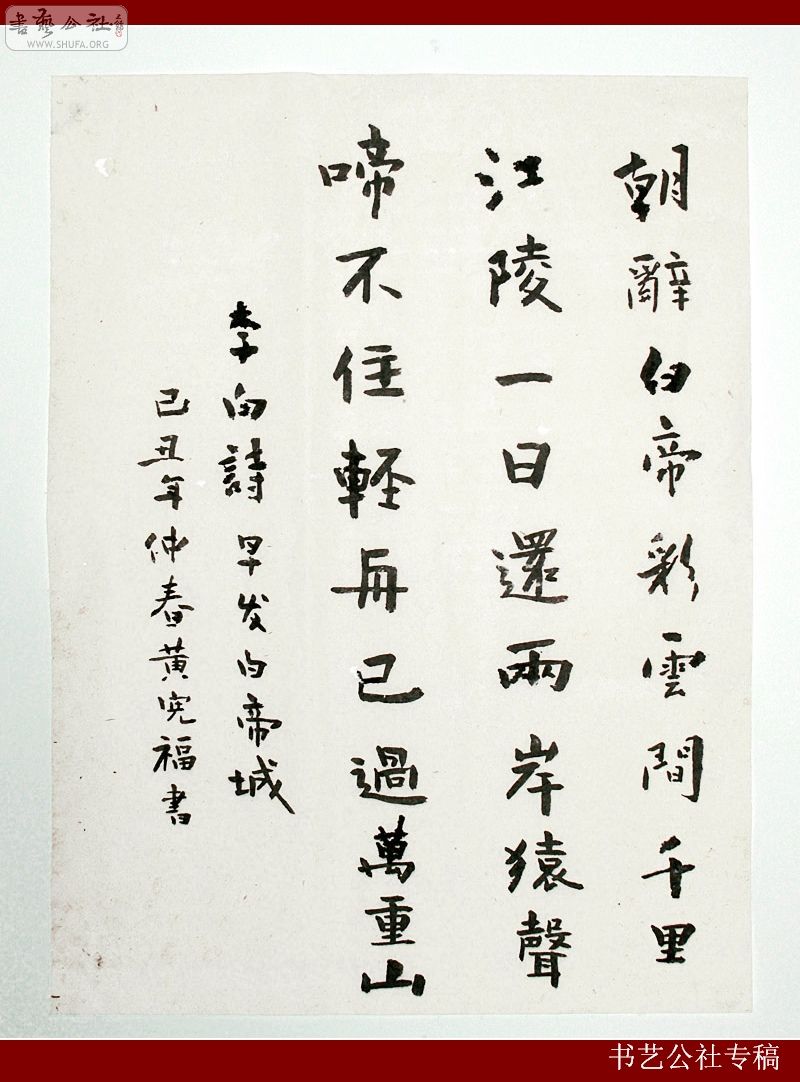 書藝公社
WWW.SHUFA.ORG
朝辭白帝彩雲間千里
江陵一日還兩岸猿聲
啼不住輕舟已過萬重山
李白詩 早发白帝城
己丑年仲春黄宪福書
书艺公社专稿